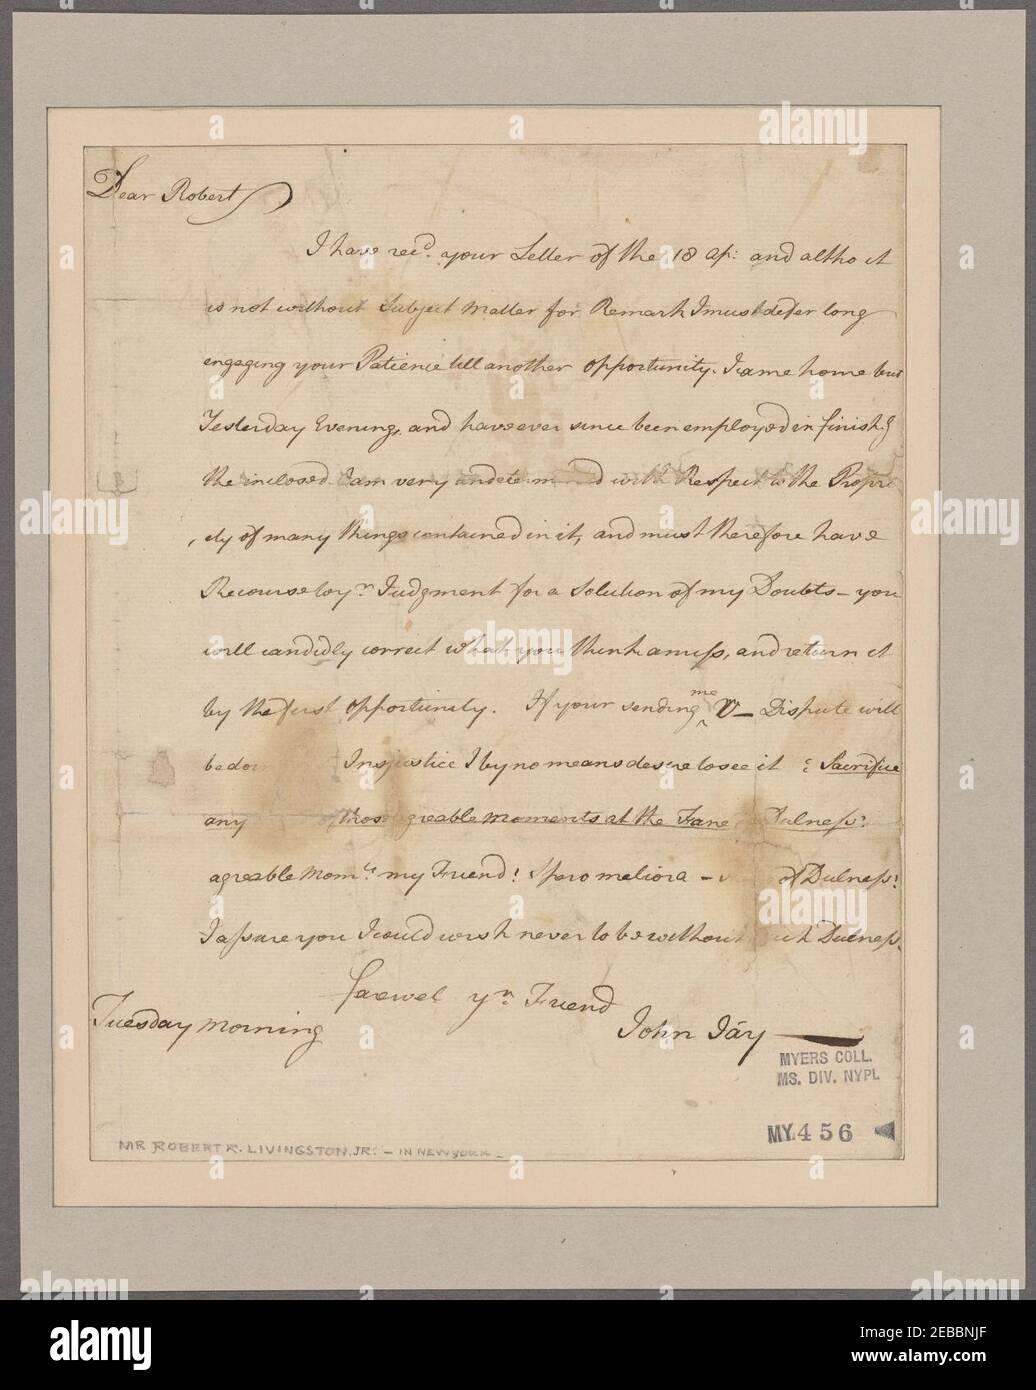 Dear Robert
I have recd. your Letter of the 18 ap: and altho it
is not without Subject Matter for Remark I must defer long
engaging your Patience till another opportunity. I came home but
Yesterday Evening, and have ever since been employed in finish.g
the inclosed. I am very undetermined with Respect to the Propri
ety of many things contained in it, and must therefore have
Recourse to yr. Judgment for a Solution of my Doubts — you
will candidly correct what you think amiss, and return it
by the first opportunity. If your sending me V— Dispute will
be Injustice I by no means desire to see it Sacrifice
any those agreable Moments at the Fane Dulness:
agreable Momts. my Friend! Spero meliora — of Dulness!
I assure you I could wish never to be without such Dulness.
farewel yr. Friend
Tuesday Morning
John Jay
MYERS COLL.
MS. DIV. NYPL
MY456
MR ROBERT R. LIVINGSTON, JR. — IN NEW YORK —
alamy
a
Image ID: 2EBBNJF
www.alamy.com